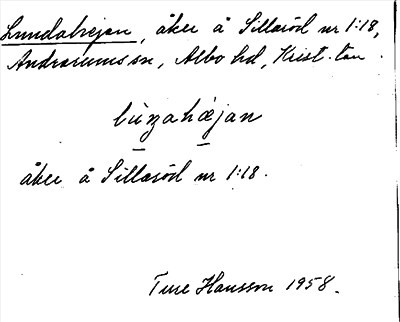 Lundahejan, åker å Sillaröd nr 1:18,
Andrarums sn, Albo hd, Krist. län.
lùnahæjan
åker å Sillaröd nr 1:18.
Ture Hansson 1958.